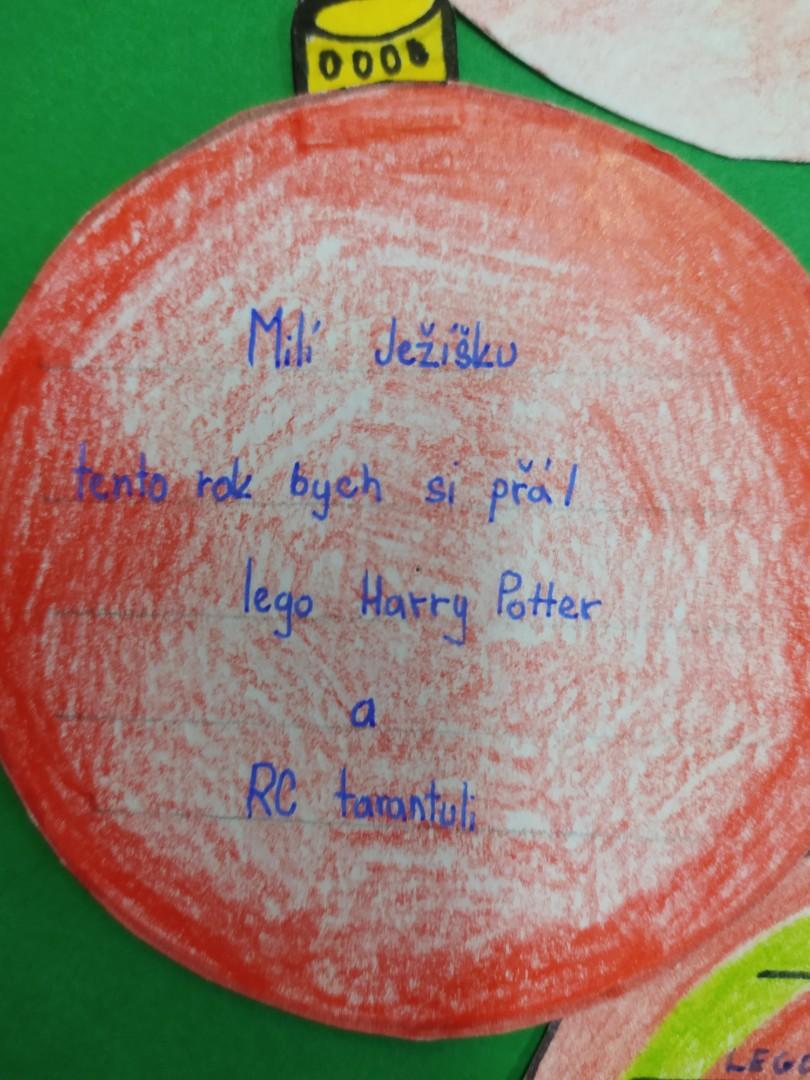 Milí Ježíšku
tento rok bych si přál
lego Harry Potter
a
RC tarantuli